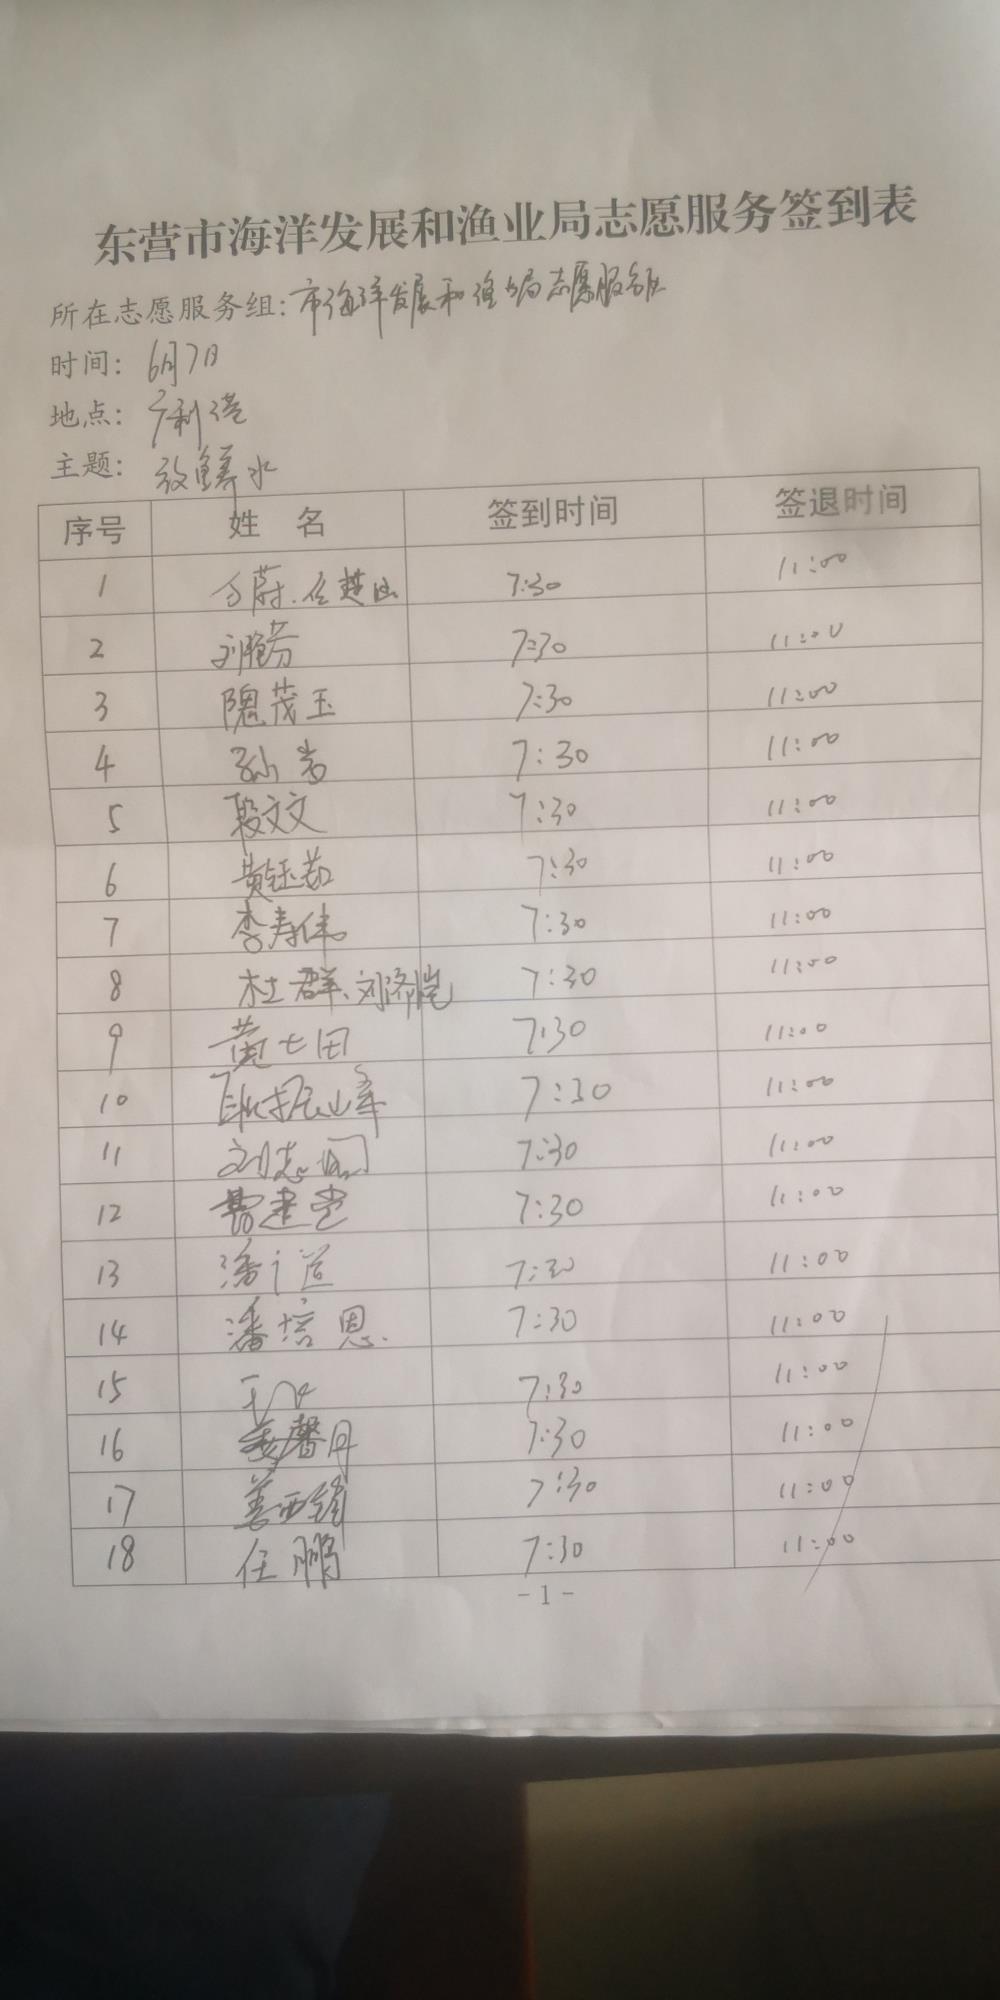 东营市海洋发展和渔业局志愿服务签到表
所在志愿服务组：市海洋发展和渔业局志愿服务队
时间：6月7日
地点：广利港
主题：放鱼养水
序号 姓 名 签到时间 签退时间
1 7:30 11:00
2 刘艳芬 7:30 11:00
3 隗茂玉 7:30 11:00
4 孙 7:30 11:00
5 段文文 7:30 11:00
6 黄钰茹 7:30 11:00
7 李寿伟 7:30 11:00
8 杜群、刘济恺 7:30 11:00
9 7:30 11:00
10 7:30 11:00
11 刘志国 7:30 11:00
12 7:30 11:00
13 潘 道 7:30 11:00
14 潘培恩 7:30 11:00
15 7:30 11:00
16 姜馨丹 7:30 11:00
17 姜西 7:30 11:00
18 任鹏 7:30 11:00
- 1 -